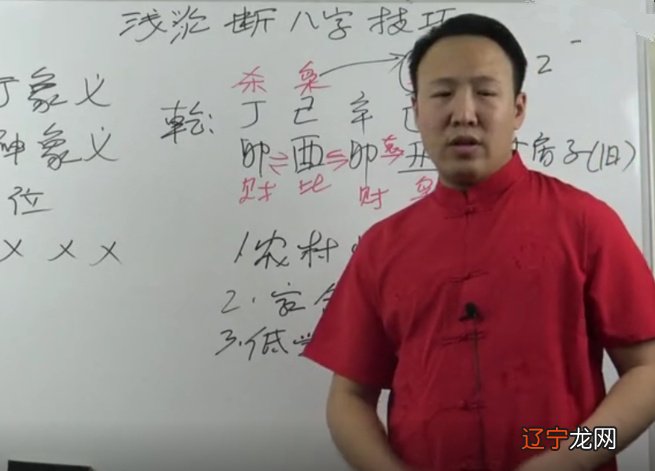 浅论断八字技巧
杀 枭
乾: 丁 己 辛 己
卯 酉 卯 丑
财 比 财 枭
象义
神象义
位
x x x
2
房子(旧)
1.农村
2.家
3.低学
辽宁龙网